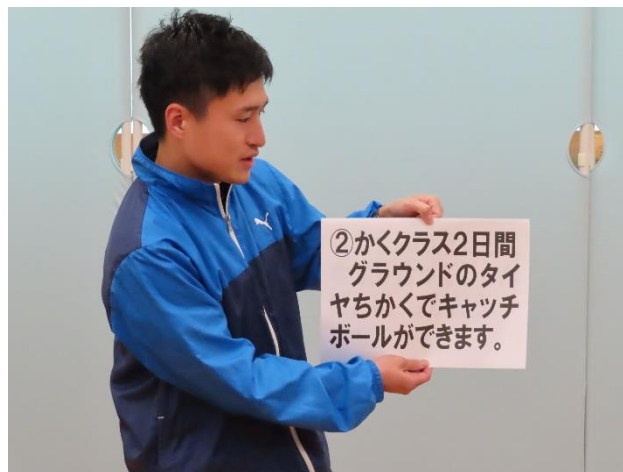 ②かくクラス2日間
グラウンドのタイ
ヤちかくでキャッチ
ボールができます。